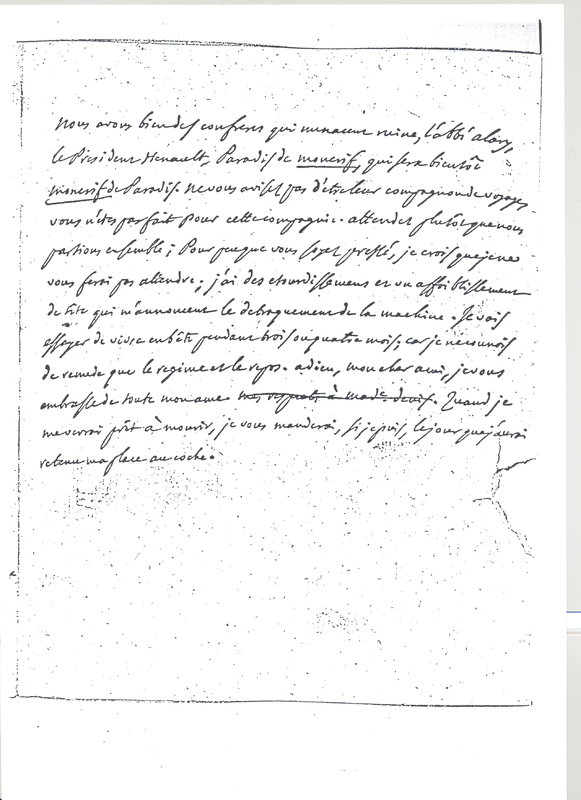 Nous avons bien des confreres qui menacent ruine, l'abbé alary,
le President Henault, Paradis de moncrif, qui sera bientôt
moncrif de Paradis. ne vous avisez pas d'etre leur compagnon de voyage
vous n'etes pas fait pour cette compagnie. attendez plutôt que nous
partions ensemble; Pour peu que vous soyez pressé, je crois que je ne
vous ferai pas attendre; j'ai des etourdissemens et un affoiblissement
de tête qui m'annoncent le detraquement de la machine. Je vais
essayer de vivre en bête pendant trois ou quatre mois; car je ne connois
de remede que le regime et le repos. adieu, mon cher ami, je vous
embrasse de toute mon ame mes respects à made. Quand je
me verrai prêt à mourir, je vous manderai, si je puis, le jour que j'aurai
retenu ma place au coche.